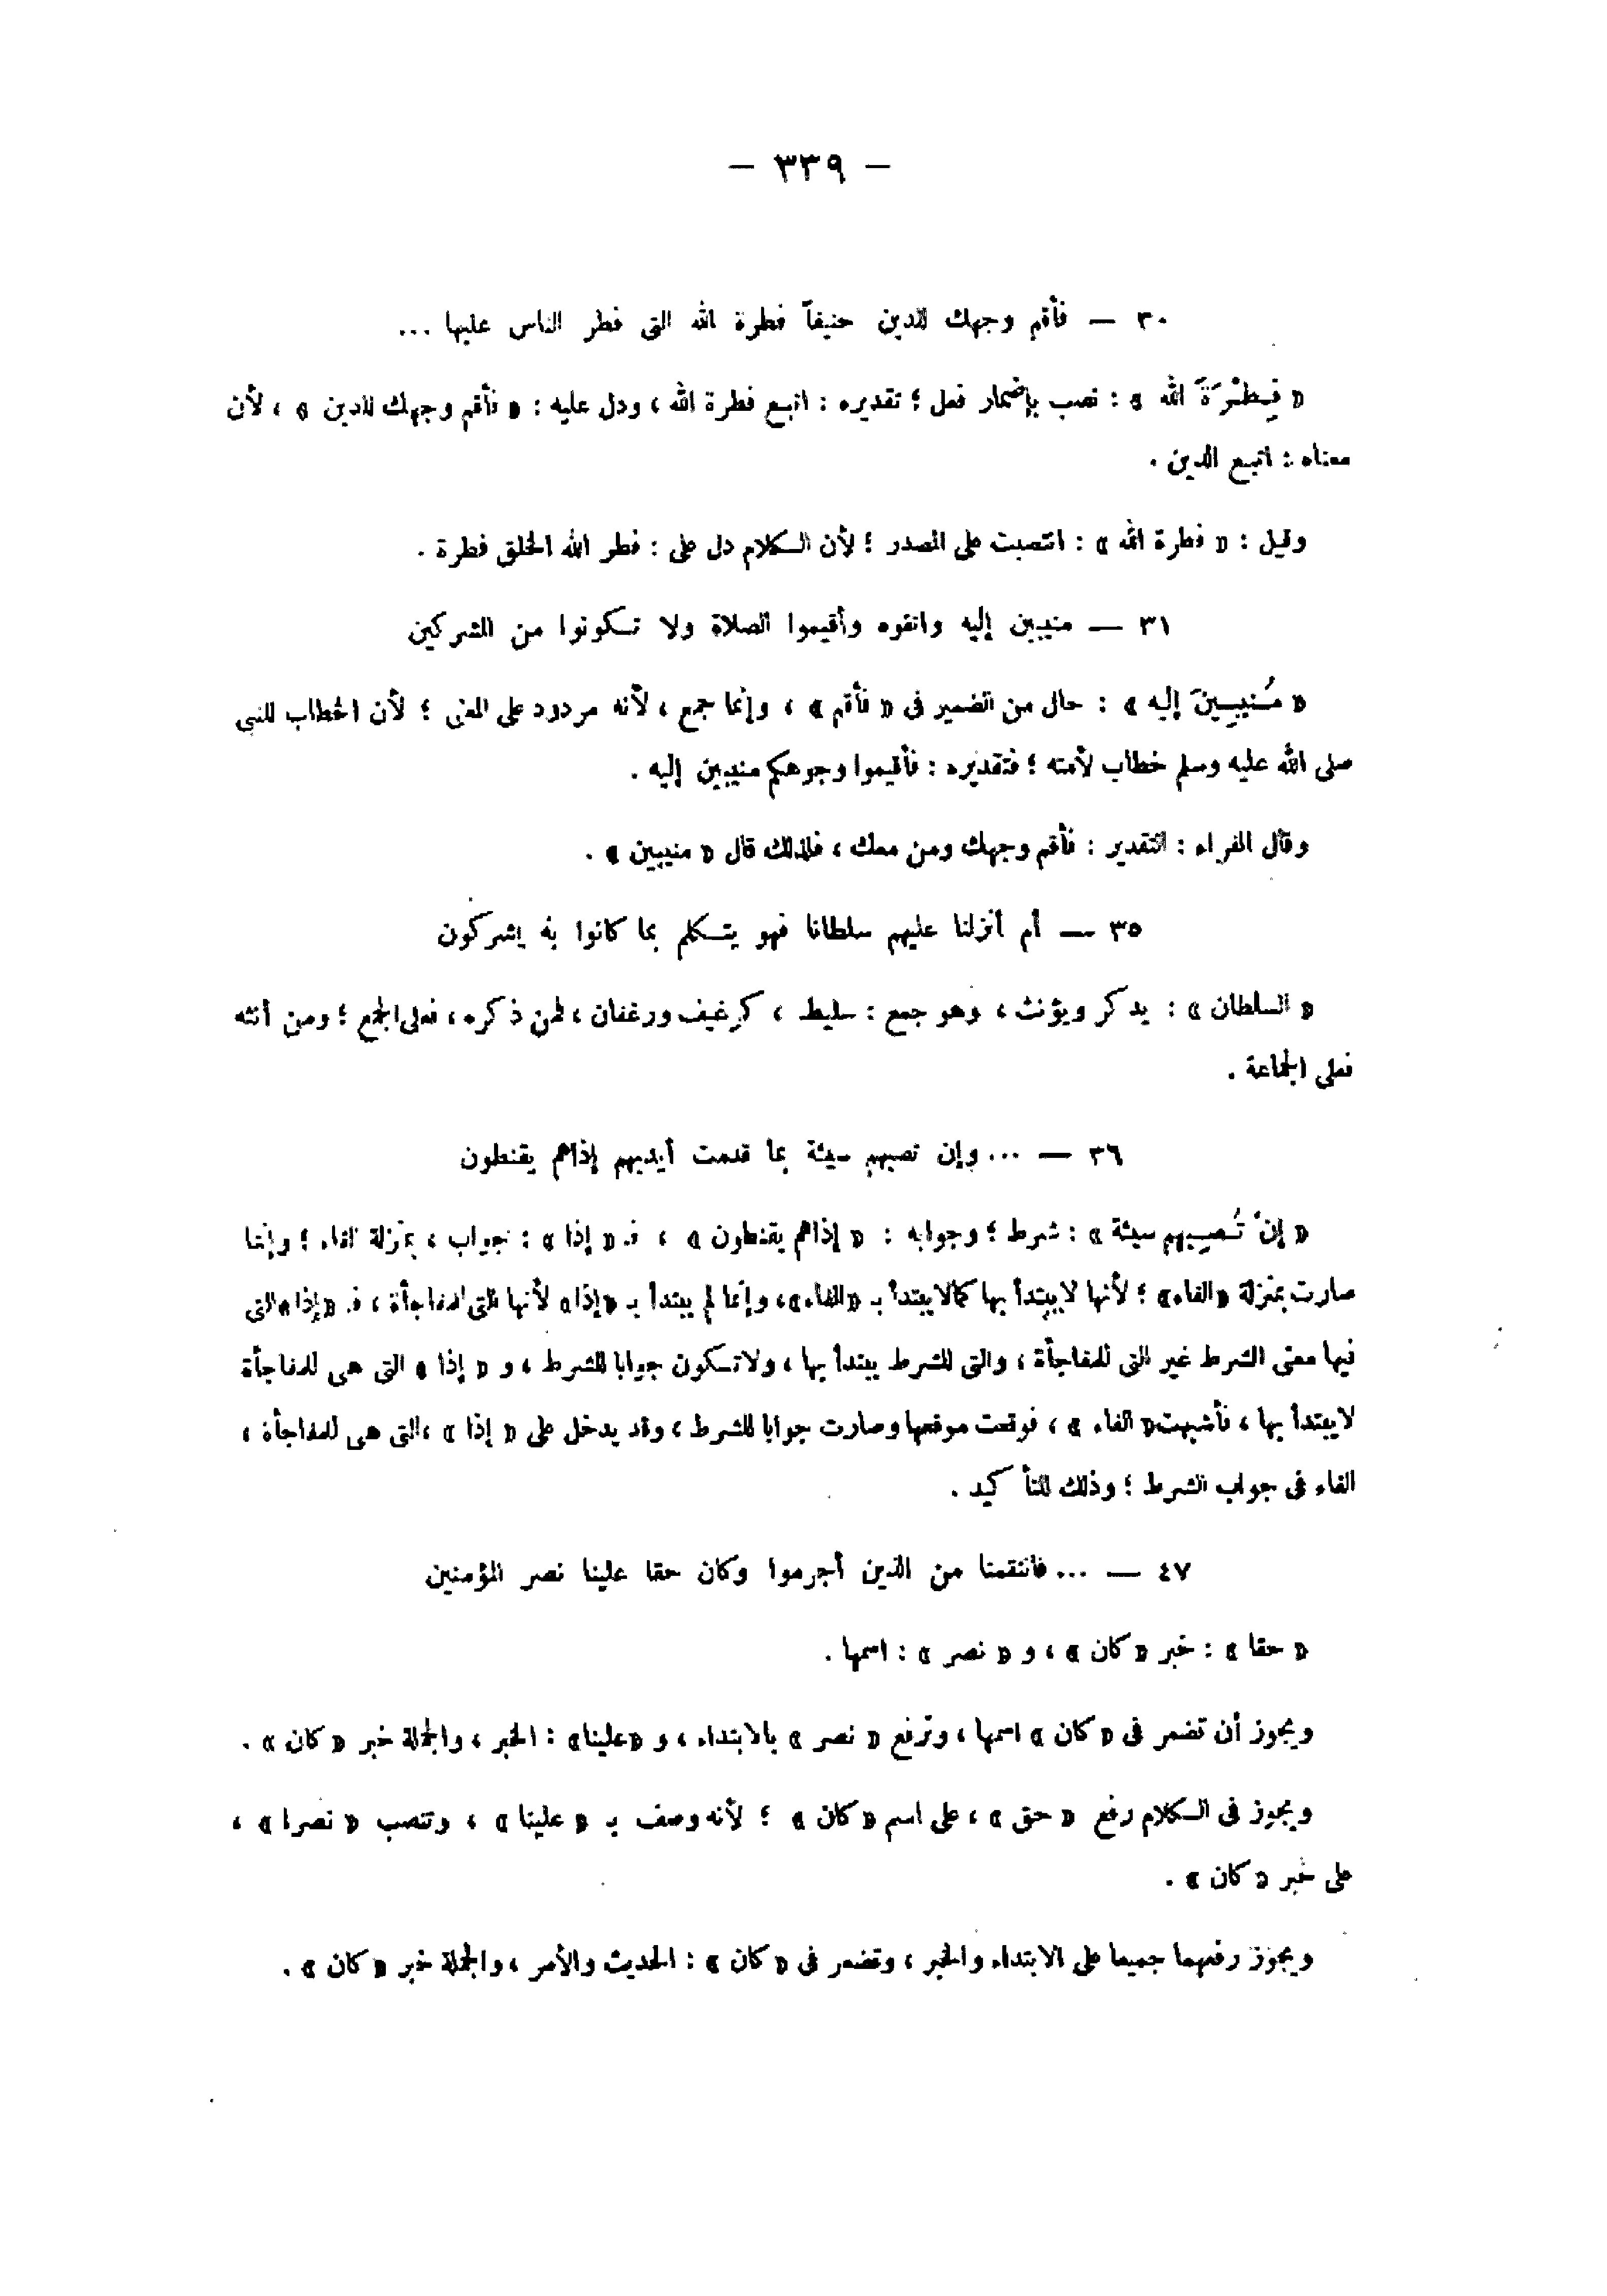 — ٣٣٩ —
٣٠ — فأقم وجهك للدين حنيفاً فطرة الله التى فطر الناس عليها ...
« فِطْرَةَ الله » : نصب بإضمار فعل ؛ تقديره : اتبع فطرة الله ، ودل عليه : « فأقم وجهك للدين » ، لأن
معناه : اتبع الدين .
وقيل : « فطرة الله » : انتصبت على المصدر ؛ لأن الكلام دل على : فطر الله الخلق فطرة .
٣١ — منيبين إليه واتقوه وأقيموا الصلاة ولا تكونوا من المشركين
« مُنيبِينَ إليه » : حال من الضمير فى « فأقم » ، وإنما جمع ، لأنه مردود على المعنى ؛ لأن الخطاب للنبى
صلى الله عليه وسلم خطاب لأمته ؛ فتقديره : فأقيموا وجوهكم منيبين إليه .
وقال الفراء : التقدير : فأقم وجهك ومن معك ، فلذلك قال « منيبين » .
٣٥ — أم أنزلنا عليهم سلطانا فهو يتكلم بما كانوا به يشركون
« السلطان » : يذكر ويؤنث ، وهو جمع : سليط ، كرغيف ورغفان ، فمن ذكره ، فعلى الجمع ؛ ومن أنثه
فعلى الجماعة .
٣٦ — ... وإن تصبهم سيئة بما قدمت أيديهم إذاهم يقنطون
« إنْ تُصِبهم سيئة » : شرط ؛ وجوابه : « إذاهم يقنطون » ، فـ « إذا » : جواب ، بمنزلة الفاء ؛ وإنما
صارت بمنزلة «الفاء» ؛ لأنها لا يبتدأ بها كما لا يبتدأ بـ «الفاء» ، وإنما لم يبتدأ بـ «إذا» لأنها التى للمفاجأة ، فـ «إذا» التى
فيها معنى الشرط غير التى للمفاجأة ، والتى للشرط يبتدأ بها ، ولا تكون جوابا للشرط ، و « إذا » التى هى للمفاجأة
لا يبتدأ بها ، فأشبهت « الفاء » ، فوقعت موقعها وصارت جوابا للشرط ، وقد يدخل على « إذا » ، التى هى للمفاجأة ،
الفاء فى جواب الشرط ؛ وذلك للتأكيد .
٤٧ — ... فانتقمنا من الذين أجرموا وكان حقا علينا نصر المؤمنين
« حقا » : خبر « كان » ، و « نصر » : اسمها .
ويجوز أن تضمر فى « كان » اسمها ، وترفع « نصر » بالابتداء ، و «علينا» : الخبر ، والجملة خبر « كان » .
ويجوز فى الكلام رفع « حق » ، على اسم « كان » ؛ لأنه وصف بـ « علينا » ، وتنصب « نصرا » ،
على خبر « كان » .
ويجوز رفعهما جميعا على الابتداء والخبر ، وتضمر فى « كان » : الحديث والأمر ، والجملة خبر « كان » .